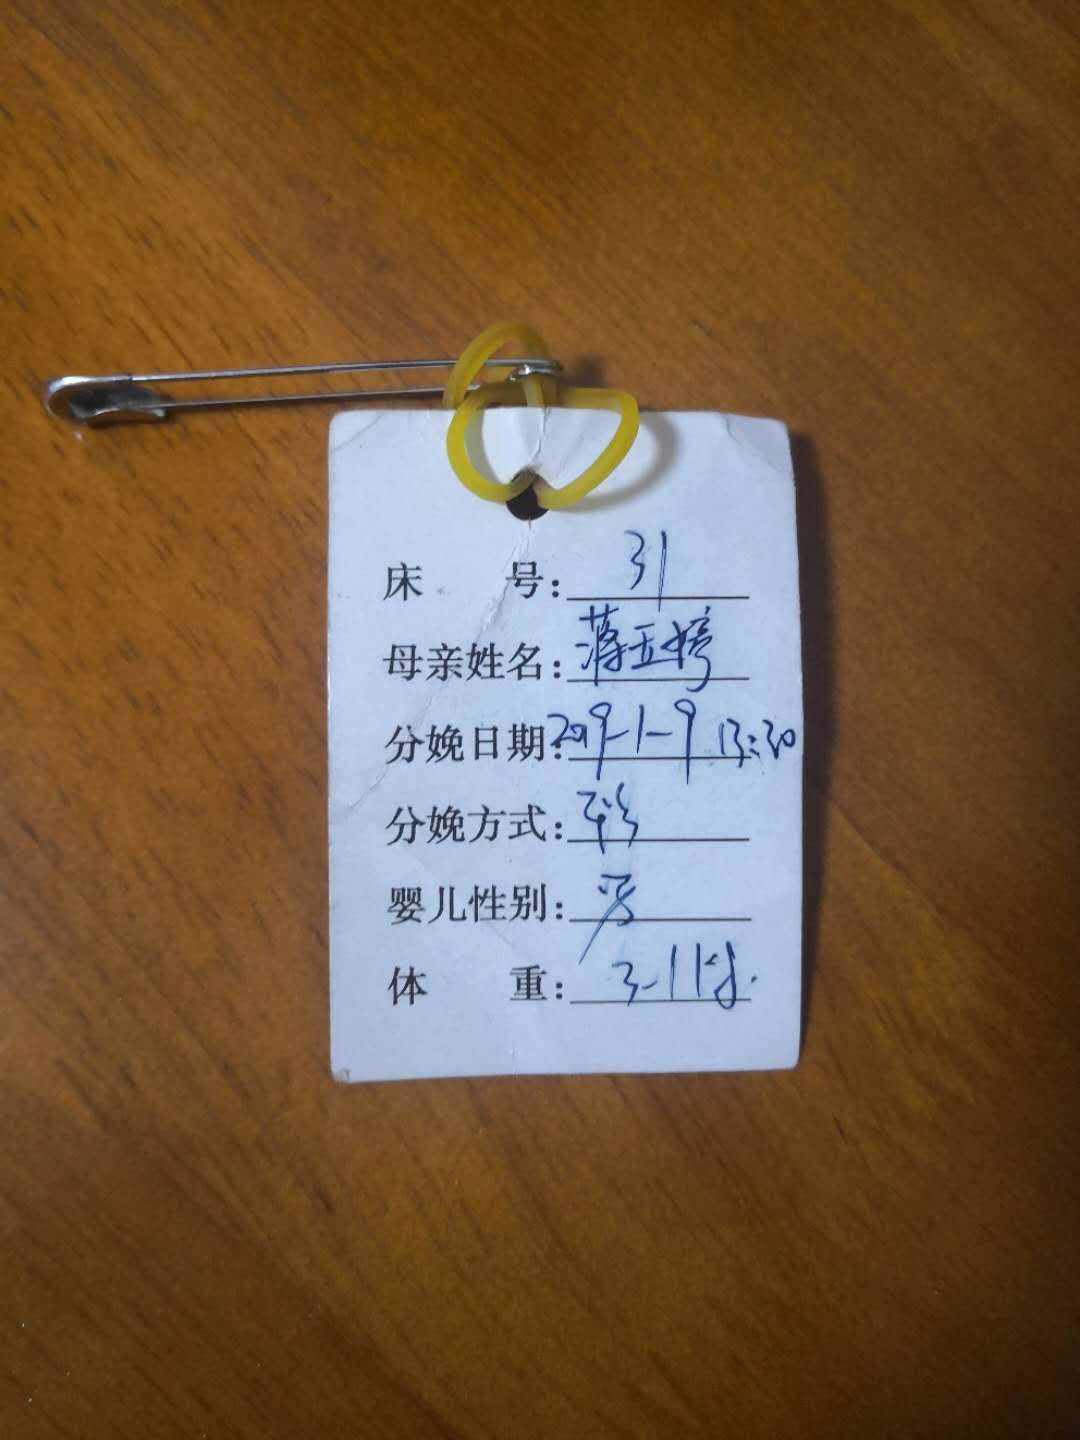 床 号: 31
母亲姓名: 婷
分娩日期: 2019-1-9 13:30
分娩方式:
婴儿性别: 男
体 重: 3.1kg.